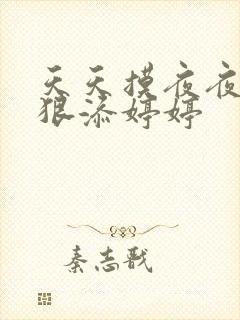 天天摸夜夜
狠添婷婷
秦志戬